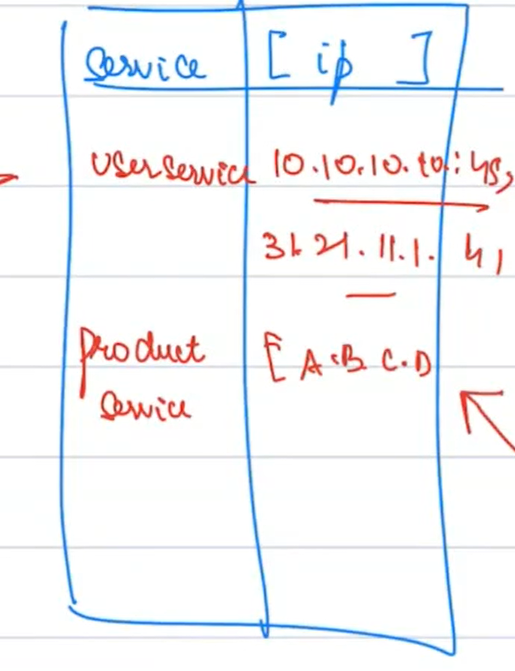 Service [ ip ]
userservice 10.10.10.10:45,
31.21.11.1. 41
product [ A.B.C.D
service